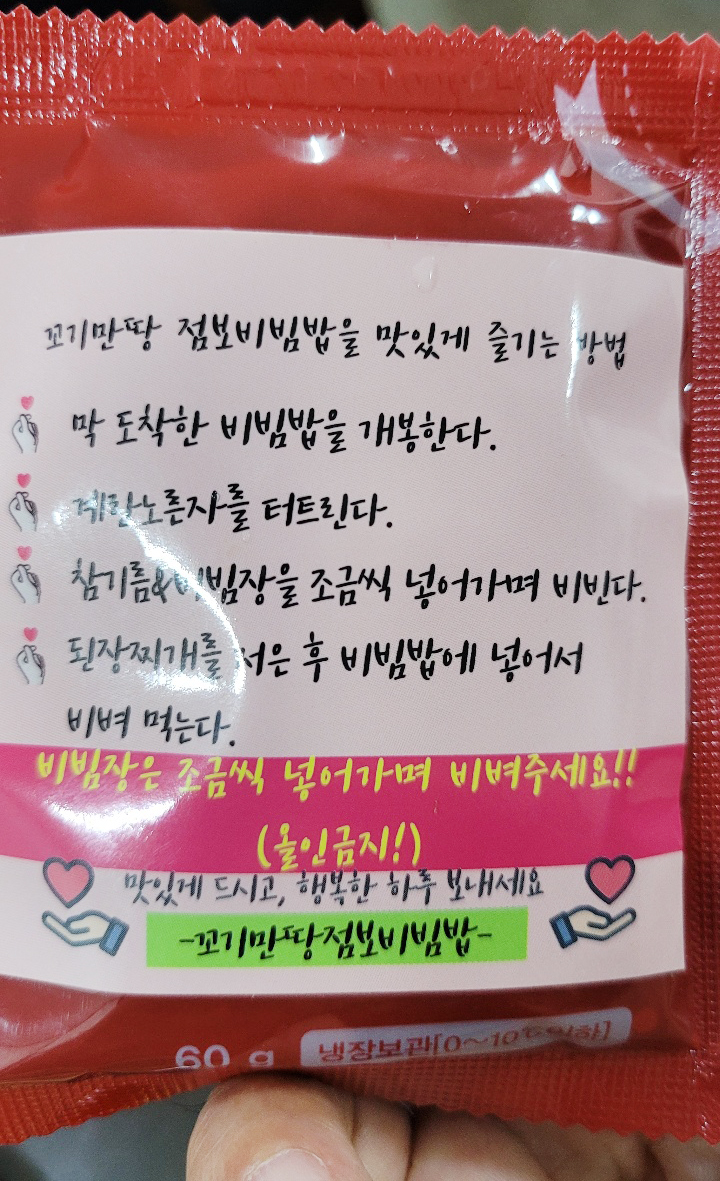 꼬기만땅 점보비빔밥을 맛있게 즐기는 방법
막 도착한 비빔밥을 개봉한다.
계란노른자를 터트린다.
참기름&비빔장을 조금씩 넣어가며 비빈다.
된장찌개를 저은 후 비빔밥에 넣어서
비벼 먹는다.
비빔장은 조금씩 넣어가며 비벼주세요!!
(올인금지!)
맛있게 드시고, 행복한 하루 보내세요
-꼬기만땅점보비빔밥-
60 g 냉장보관[0~10℃이하]